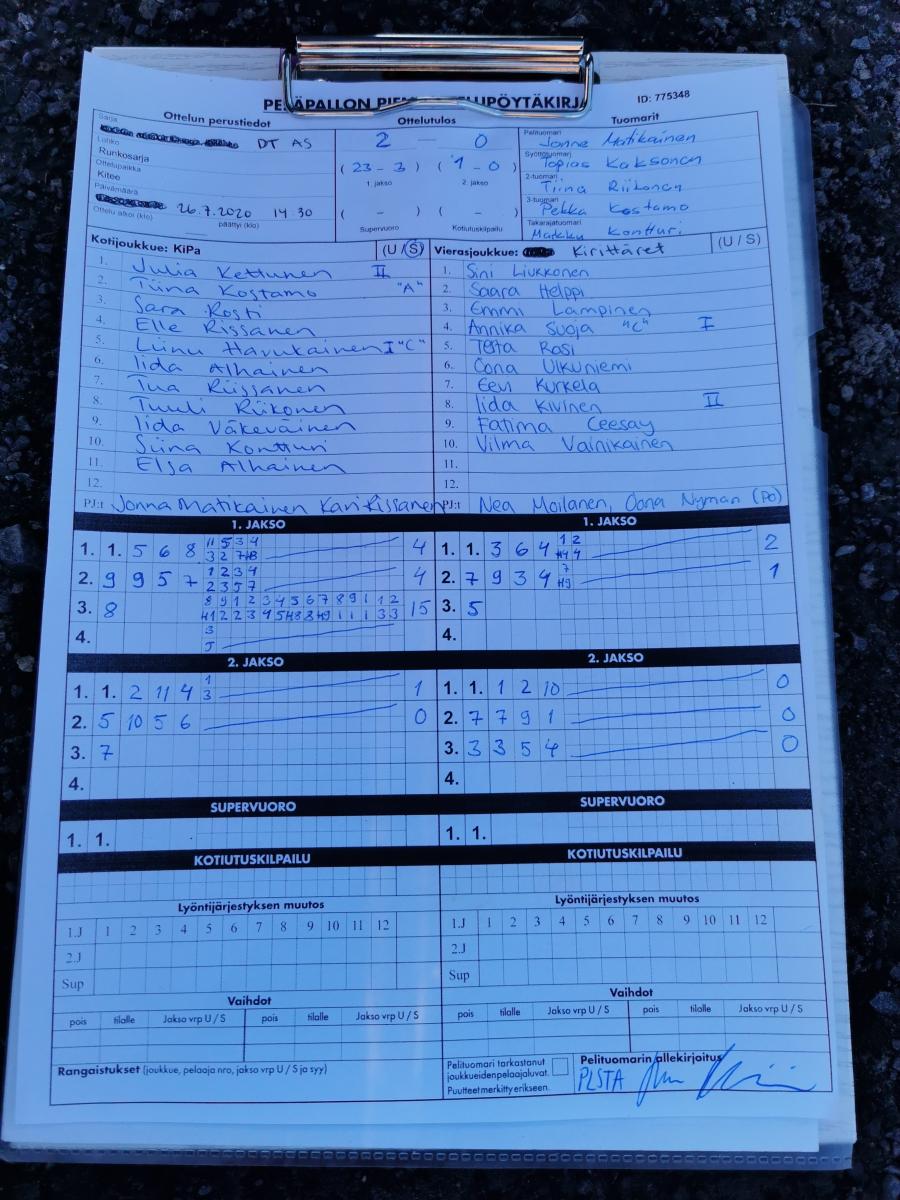 ID: 775348
Ottelun perustiedot
Sarja
DT AS
Lohko
Runkosarja
Ottelupaikka
Kitee
Päivämäärä
26.7.2020 14 30
Ottelu alkoi (klo) päättyi (klo)
Ottelutulos
2 — 0
(23 - 3) (1 - 0)
1. jakso 2. jakso
( - ) ( - )
Supervuoro Kotiutuskilpailu
Tuomarit
Pelituomari
Jonne Matikainen
Syöttötuomari
Topias Kaksonen
2-tuomari
Tiina Riikonen
3-tuomari
Pekka Kostamo
Takarajatuomari
Kontturi
Kotijoukkue: KiPa (U / S)
1. Julia Kettunen II
2. Tiina Kostamo "A"
3. Sara Rosti
4. Elle Rissanen
5. Liinu Havukainen I "C"
6. Iida Alhainen
7. Tua Riissanen
8. Tuuli Riikonen
9. Iida Väkeväinen
10. Siina Kontturi
11. Elsa Alhainen
12.
PJ:t Jonna Matikainen Kari Rissanen
Vierasjoukkue: Kirittäret (U / S)
1. Sini Liukkonen
2. Saara Helppi
3. Emmi Lampinen
4. Annika Suoja "C" I
5. Rasi
6. Oona Ulkuniemi
7. Eevi Kurkela
8. Iida Kivinen II
9. Fatima Ceesay
10. Vilma Vainikainen
11.
12.
PJ:t Nea Moilanen, Oona Nyman (PO)
1. JAKSO
1. 1. 5 6 8 4
2. 9 9 5 7 1 2 3 4 4
2 3 5 7
3. 8 15
4. 3
5
2. JAKSO
1. 1. 2 11 4 1 1
3
2. 5 10 5 6 0
3. 7
4.
SUPERVUORO
1. 1.
KOTIUTUSKILPAILU
1. JAKSO
1. 1. 3 6 4 1 2 2
2. 7 9 3 4 7 1
3. 5
4.
2. JAKSO
1. 1. 1 2 10 0
2. 7 7 9 1 0
3. 3 3 5 4 0
4.
SUPERVUORO
1. 1.
KOTIUTUSKILPAILU
Lyöntijärjestyksen muutos
1.J 1 2 3 4 5 6 7 8 9 10 11 12
2.J
Sup
Vaihdot
pois tilalle Jakso vrp U / S pois tilalle Jakso vrp U / S
Rangaistukset (joukkue, pelaaja nro, jakso vrp U / S ja syy)
Lyöntijärjestyksen muutos
1.J 1 2 3 4 5 6 7 8 9 10 11 12
2.J
Sup
Vaihdot
pois tilalle Jakso vrp U / S pois tilalle Jakso vrp U / S
Pelituomari tarkastanut
joukkueidenpelaajaluvat.
Puutteet merkitty erikseen.
Pelituomarin allekirjoitus
PLSTA